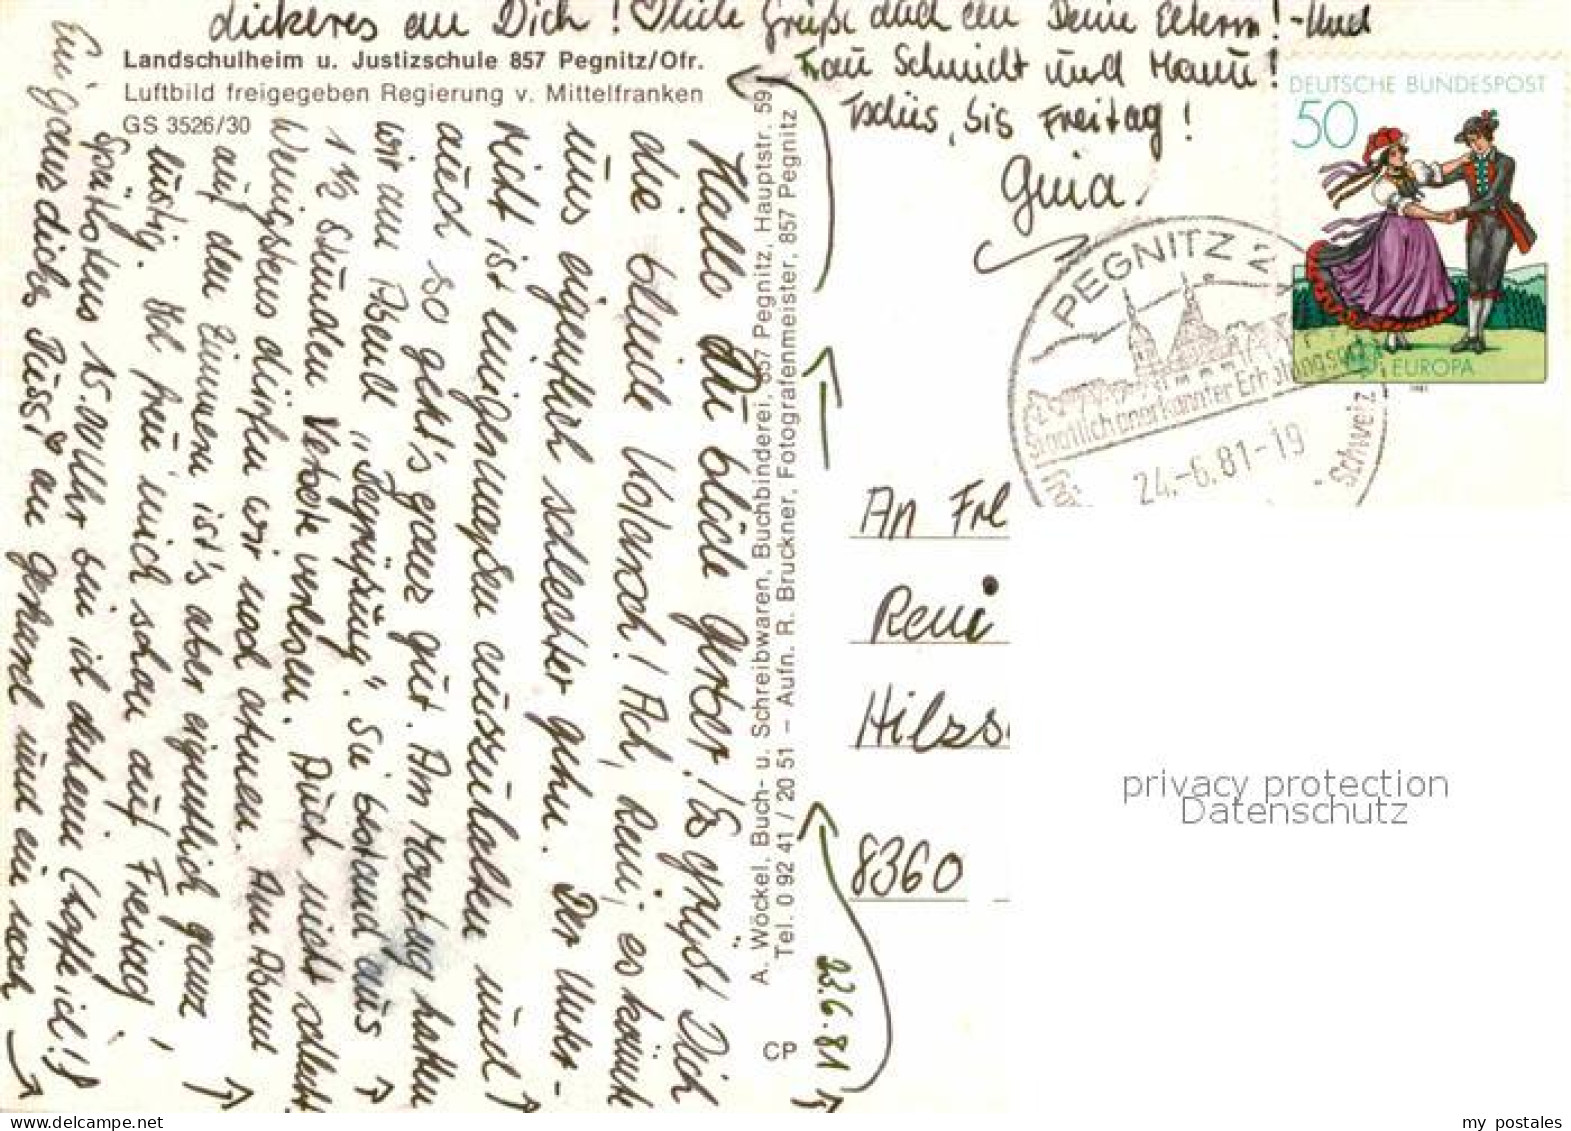 Landschulheim u. Justizschule 857 Pegnitz/Ofr.
Luftbild freigegeben Regierung v. Mittelfranken
GS 3526/30
A. Wöckel, Buch- u. Schreibwaren, Buchbinderei, 857 Pegnitz, Hauptstr. 59
Tel. 0 92 41 / 20 51 – Aufn. R. Bruckner, Fotografenmeister, 857 Pegnitz
CP
23.6.81
Hallo Du blöde Gerber! Es grüßt Dich
die blinde! Ach, Reni, es könnte
uns eigentlich schlechter gehn. Der Unter-
richt ist einigermaßen auszuhalten und
auch so geht's ganz gut. Am Montag hatten
wir am Abend „Begrüßung“. Sie bestand aus
1 ½ Stunden Verbote verlesen. Auch nicht schlecht
Wenigstens dürfen wir noch atmen. Am Abend
auf den Zimmern ist's aber eigentlich ganz
lustig. Ich freu' mich schon auf Freitag,
spätestens 15.00 Uhr bin ich daheim (hoffe ich!)!
Ein ganz dickes Bussi an Gerhard und ein noch
dickeres an Dich! Viele Grüße auch an Deine Eltern! - Und
Frau Schmidt und Mann!
Tschüs, bis Freitag!
Gina.
DEUTSCHE BUNDESPOST
50
EUROPA
1981
PEGNITZ 2
Staatlich anerkannter Erholungsort
24.-6.81-19
Schweiz
An Frl
Reni
Hilzs
8360
privacy protection
Datenschutz
my postales
delcampe.net